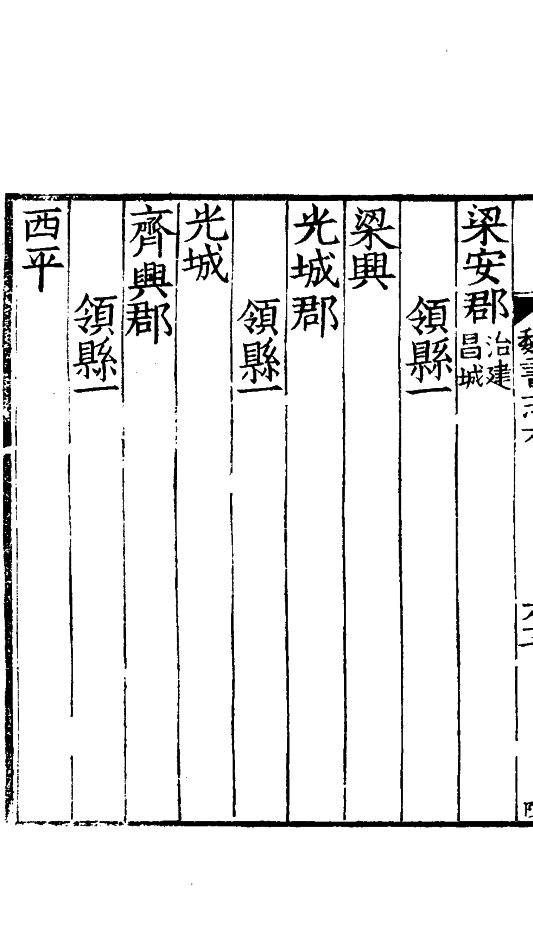 魏書志六
梁安郡治建昌城
領縣一
梁興
光城郡
領縣一
光城
齊興郡
領縣一
西平